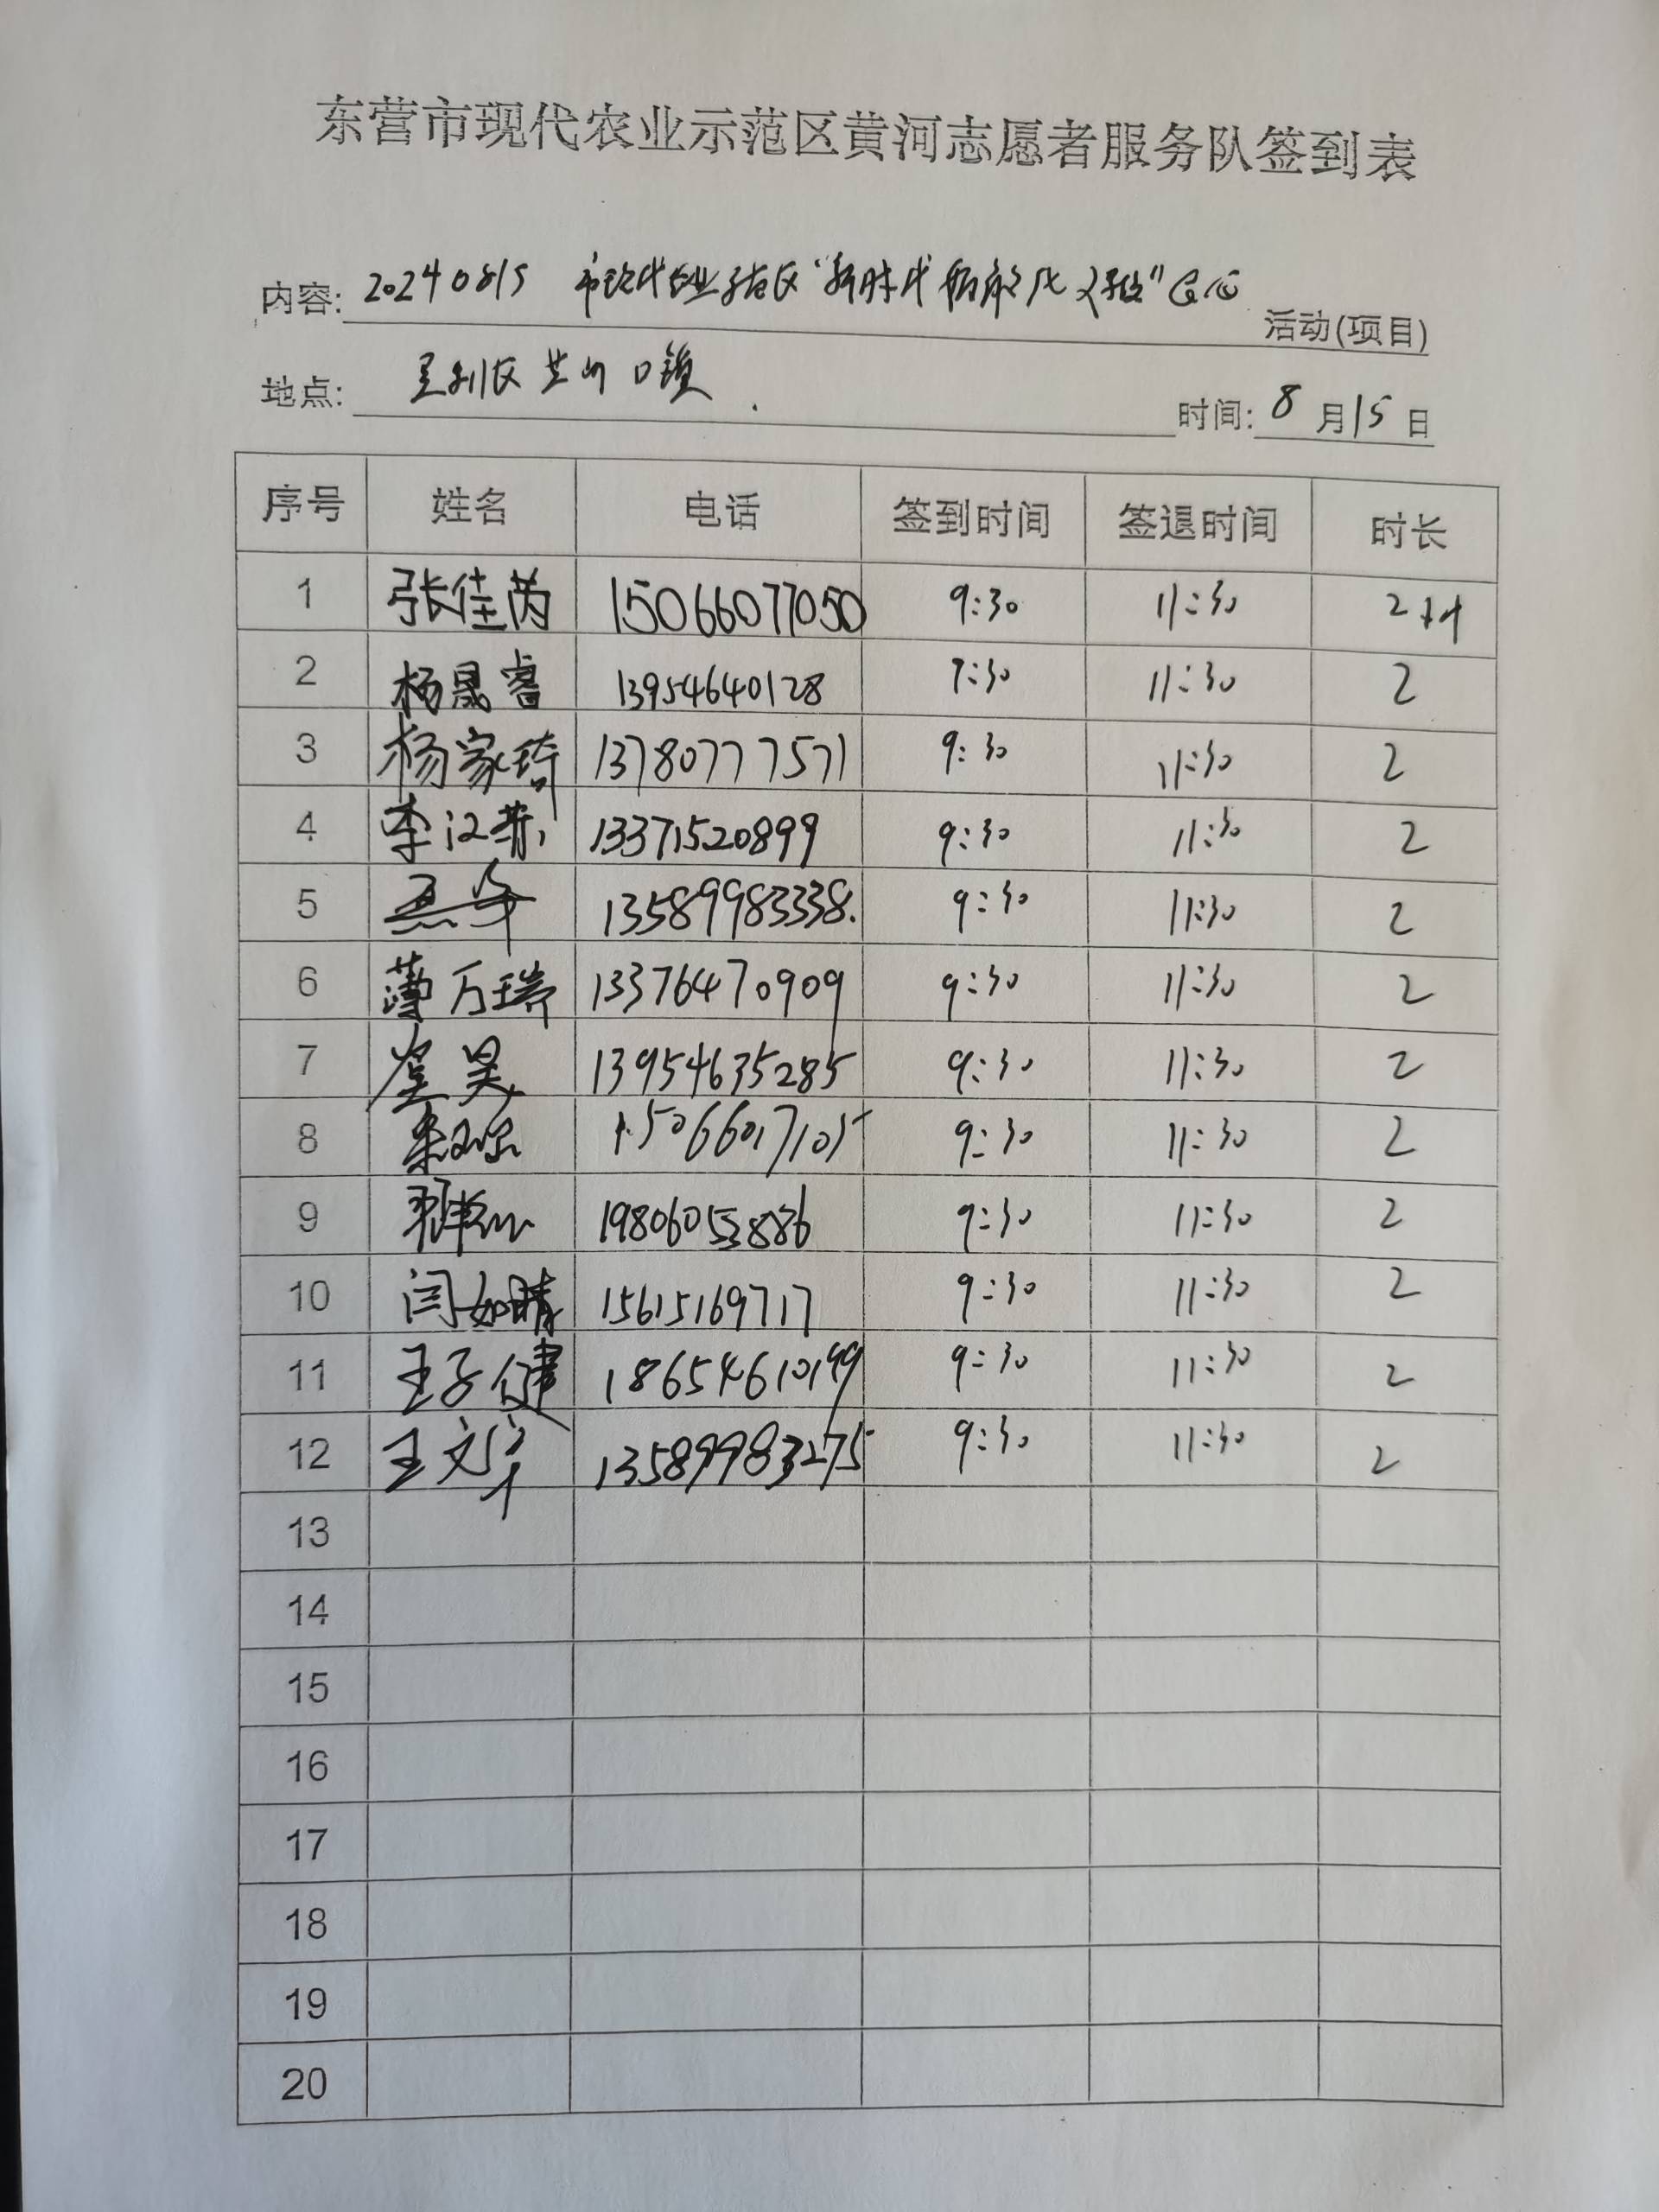 东营市现代农业示范区黄河志愿者服务队签到表
内容: 20240815 市现代农业示范区"新时代 "公益 活动(项目)
地点: 垦利区黄河口镇 时间: 8月15日
序号 姓名 电话 签到时间 签退时间 时长
1 张佳芮 15066077050 9:30 11:30 2小时
2 杨晟睿 13954640128 9:30 11:30 2
3 杨家琦 13780777571 9:30 11:30 2
4 李汶 13371520899 9:30 11:30 2
5 13589983338. 9:30 11:30 2
6 薄万瑞 13376470909 9:30 11:30 2
7 崔昊 13954635285 9:30 11:30 2
8 15066017105 9:30 11:30 2
9 19806053886 9:30 11:30 2
10 闫如晴 15615169717 9:30 11:30 2
11 王子健 18654610199 9:30 11:30 2
12 王文 13589983275 9:30 11:30 2
13
14
15
16
17
18
19
20